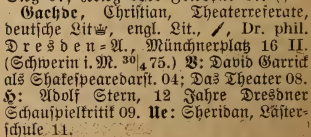 Gaehde, Christian, Theaterreferate,
deutsche Lit, engl. Lit., Dr. phil.
Dresden=A., Münchnerplatz 16 II.
(Schwerin i. M. 30/4 75.) V: David Garrick
als Shakespearedarst. 04; Das Theater 08.
H: Adolf Stern, 12 Jahre Dresdner
Schauspielkritik 09. Ue: Sheridan, Läster-
schule 11.